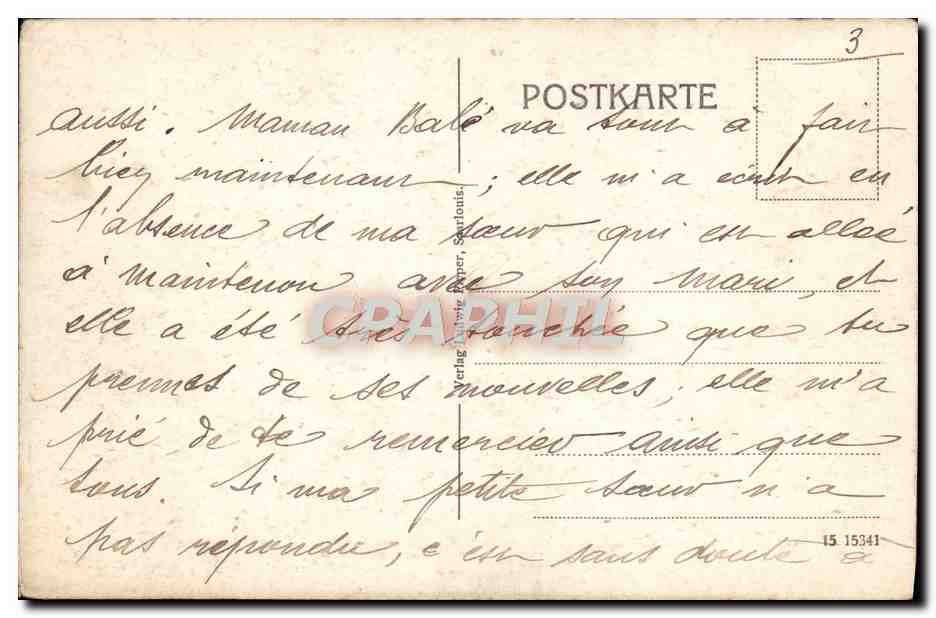 3
POSTKARTE
aussi. Maman Balé va tout à fait
bien maintenant ; elle m'a écrit en
l'absence de ma sœur qui est allée
à Maintenon avec son mari, et
elle a été très touchée que tu
prennes de ses nouvelles ; elle m'a
prié de te remercier ainsi que
tous. Si ma petite sœur n'a
pas répondu, c'est sans doute à
Verlag Ludwig Pieper, Saarlouis.
15 15341
CRAPHIL